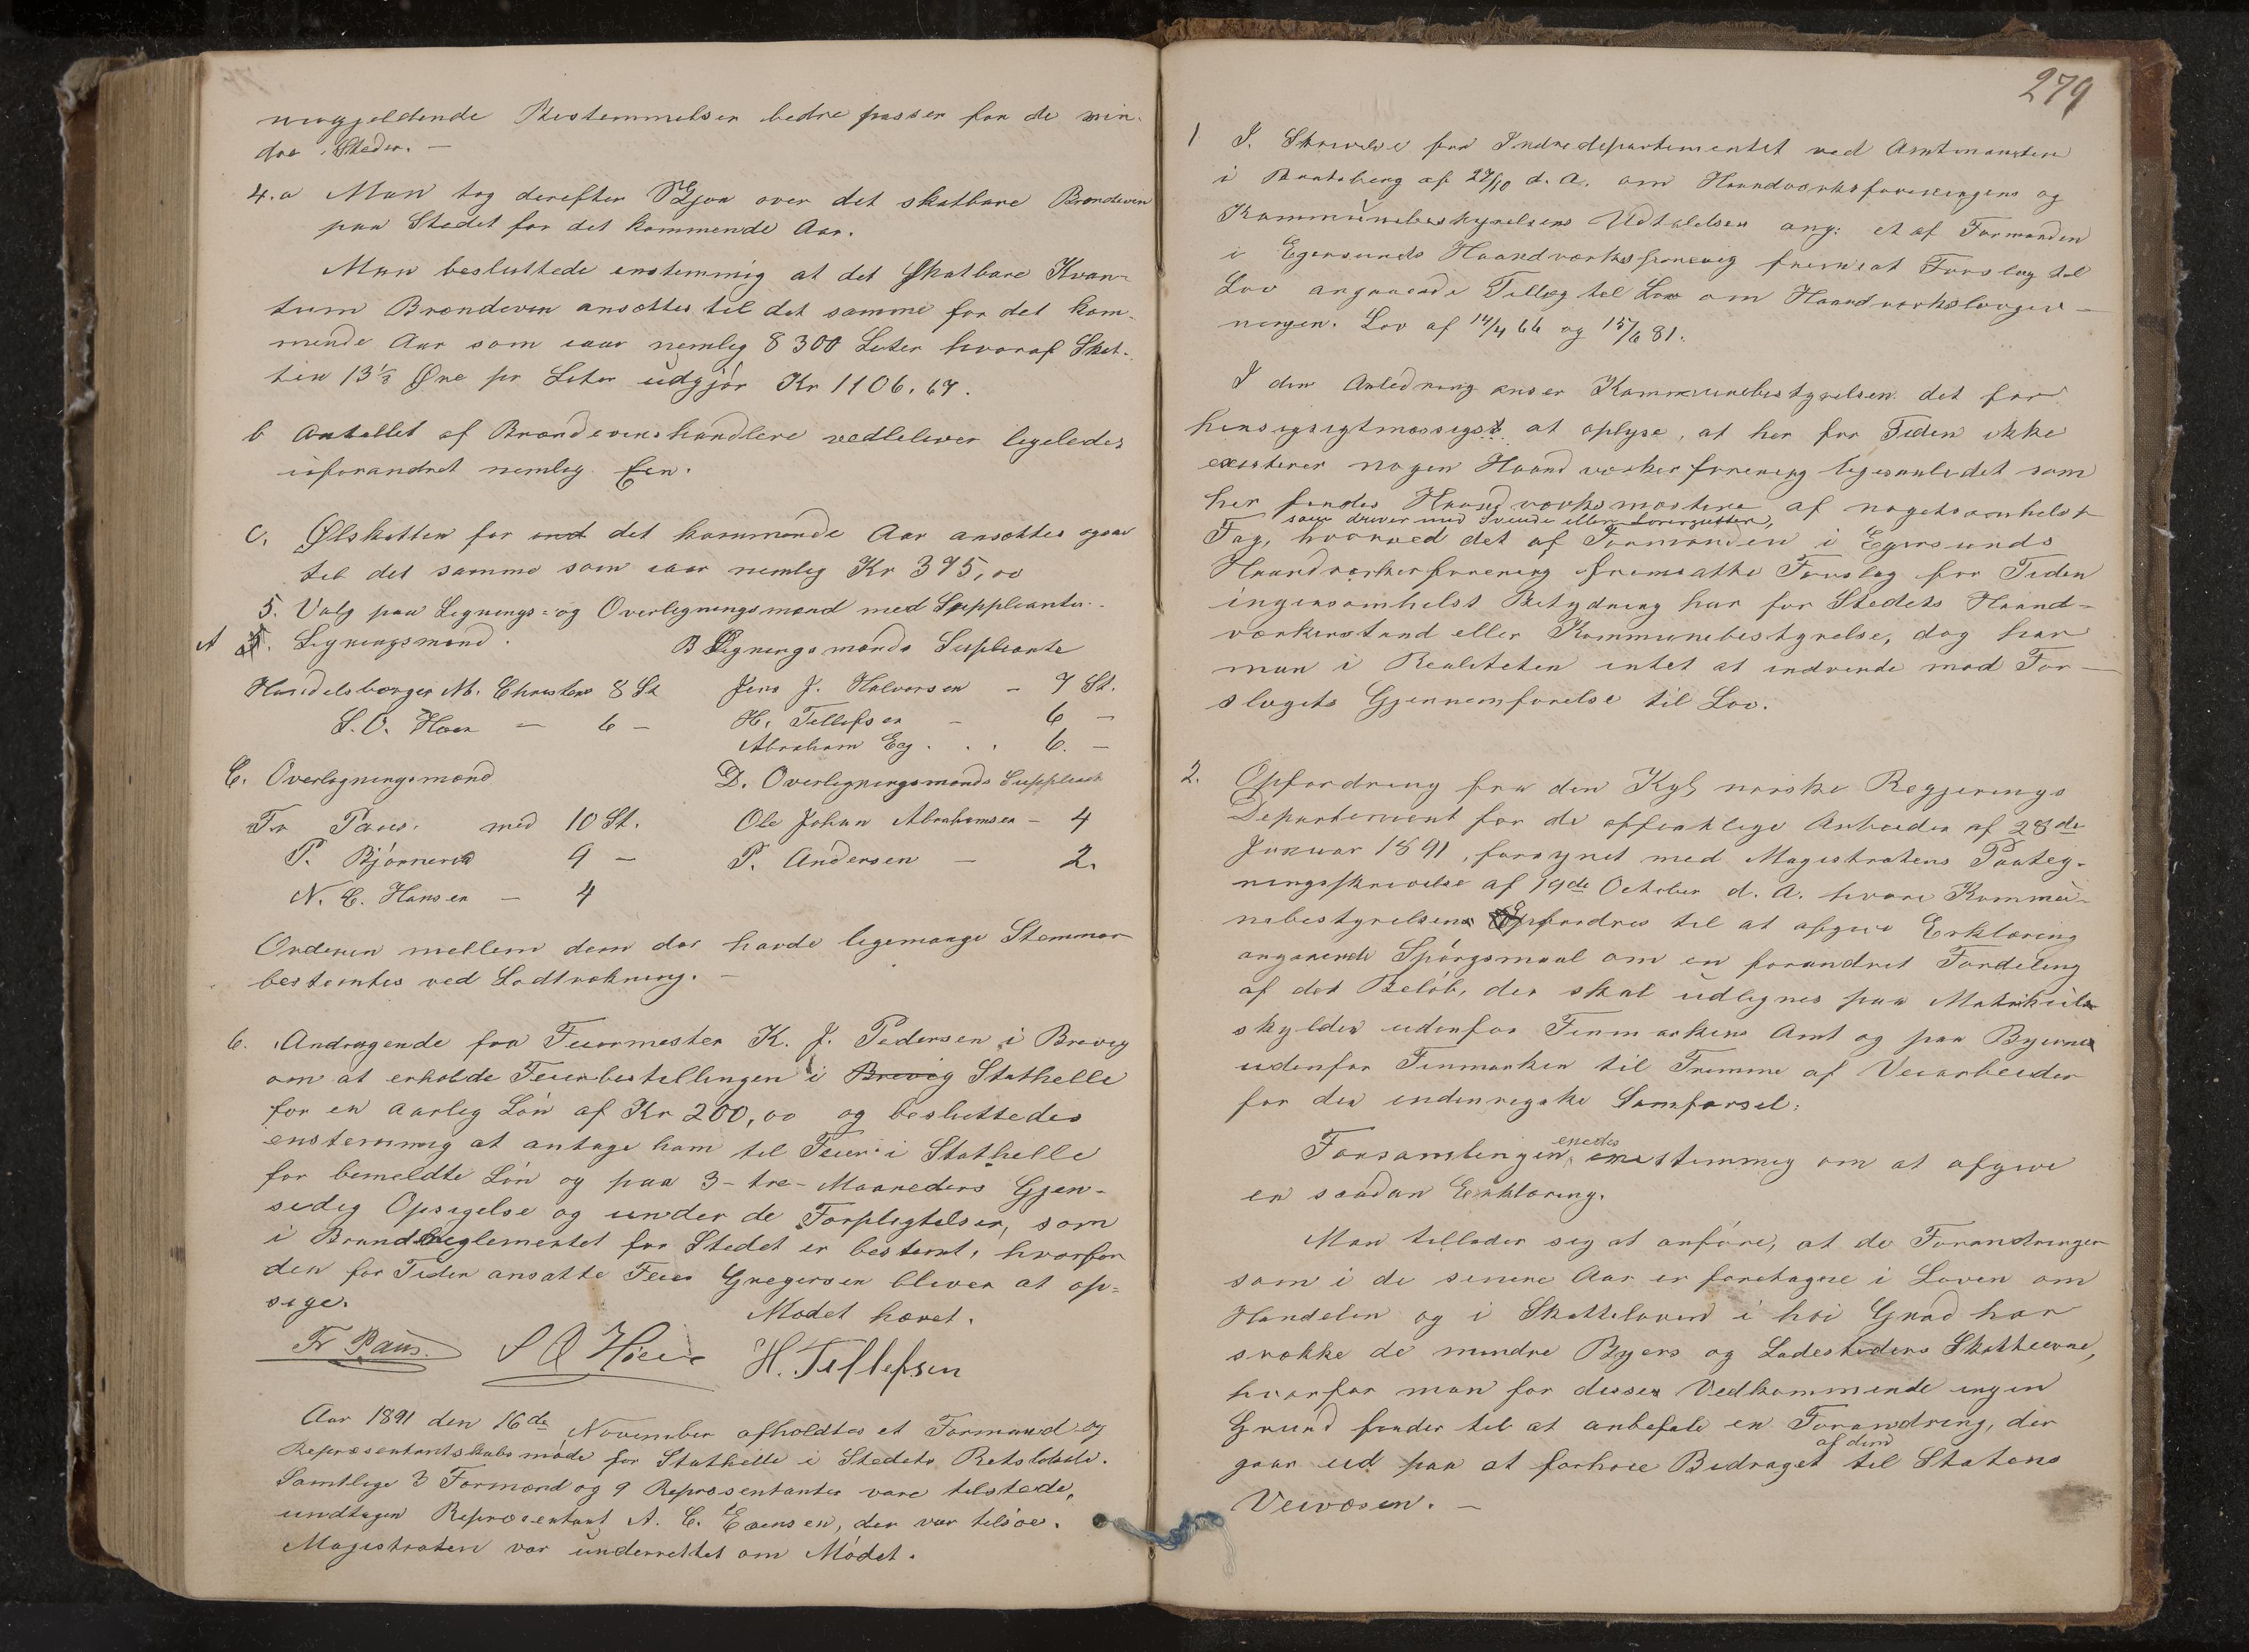 nugjeldende Bestemmelser bedre passer for de min-
dre Steder. —
4. a Man tog derefter Skjøn over det skatbare Brændevin
paa Stedet for det kommende Aar.
Man besluttede enstemmig at det skatbare Kvan-
tum Brændevin ansættes til det samme for det kom-
mende Aar som iaar nemlig 8300 Liter hvoraf Skat-
ten 13⅓ Øre pr Liter udgjør Kr 1106,67.
b Antallet af Brændevinshandlere vedbliver ligeledes
uforandret nemlig Een.
c. Ølskatten for det kommende Aar ansættes ogsaa
til det samme som iaar nemlig Kr 375,00
5. Valg paa Lignings- og Overligningsmænd med Suppleanter.
A Ligningsmænd. B Ligningsmænds Supleante
Handelsborger M. Christens 8 St Jens J. Halvorsen – 7 St.
S. O. Høen — 6 — H. Tellefsen — 6 —
Abraham Eeg . . . 6. —
C. Overligningsmænd D. Overligningsmænds Suppleant
Fr Paus. med 10 St. Ole Johan Abrahamsen – 4
P. Bjørnerød 9 — P. Andersen — 2.
N. C. Hansen — 4
Ordenen mellem dem der havde ligemange Stemmer
bestemtes ved Lodtrækning. —
6. Andragende fra Feiermester K. J. Pedersen i Brevig
om at erholde Feierbestillingen i Brevig Stathelle
for en aarlig Løn af Kr 200,00 og besluttedes
enstemmig at antage ham til Feier i Stathelle
for bemeldte Løn og paa 3- tre- Maaneders Gjen-
sidig Opsigelse og under de Forpligtelser, som
i Brandreglementet for Stedet er bestemt, hvorfor
den for Tiden ansatte Feier Gregersen bliver at op-
sige.
Mødet hævet.
Fr Paus. S O Høen H. Tellefsen
Aar 1891 den 16de November afholdtes et Formand og
Repræsentantskabsmøde for Stathelle i Stedets Retslokale.
Samtlige 3 Formænd og 9 Repræsentanter vare tilstede,
undtagen Repræsentant A. C. Evensen, der var tilsøes.
Magistraten var underrettet om Mødet.
279
1 I. Skrivelse fra Indredepartementet ved Amtmanden
i Bratsberg af 27/10 d. A. om Haandværksforeningens og
Kommunebestyrelsens Udtalelser ang: et af Formanden
i Egersunds Haandværksforenig fremsat Forslag til
Lov angaaende Tillæg til Lov om Haandværkslovgiv-
ningen. Lov af 14/4 66 og 15/6 81.
I den Anledning anser Kommunebestyrelsen det for
hensigsigtmæssigst at oplyse, at her for Tiden ikke
existerer nogen Haandværkerforening ligesaalidet som
her findes Haandværksmestere af nogetsomhelst
som driver med Svende eller Læregutter,
Fag, hvorved det af Formanden i Egersunds
Haandværkerforening fremsatte Forslag for Tiden
ingensomhelst Betydning har for Stedets Haand-
værkerstand eller Kommunebestyrelse, dog har
man i Realiteten intet at indvende mod For-
slagets Gjennemførelse til Lov.
2. Opfordring fra den Kgl norske Regjerings
Departement for de offentlige Arbeider af 28de
Januar 1891, forsynet med Magistratens Paateg-
ningsskrivelse af 19de October d. A. hvori Kommu-
nebestyrelsen opfordres til at afgive Erklæring
angaaende Spørgsmaal om en forandret Fordeling
af det Beløb, der skal udlignes paa Matrikul-
skylden udenfor Finmarkens Amt og paa Byerne
udenfor Finmarken til Fremme af Veiarbeider
for den indenrigske Samfærsel.
enedes
Forsamlingen enstemmig om at afgive
en saadan Erklæring.
Man tillader sig at anføre, at de Forandringer
som i de senere Aar er foretagne i Loven om
Handelen og i Skatteloven i høi Grad har
svække de mindre Byers og Ladesteders Skatteevne,
hvorfor man for disses Vedkommende ingen
Grund finder til at anbefale en Forandring, der
af dem
gaar ud paa at forhøie Bidraget til Statens
Veivæsen. —